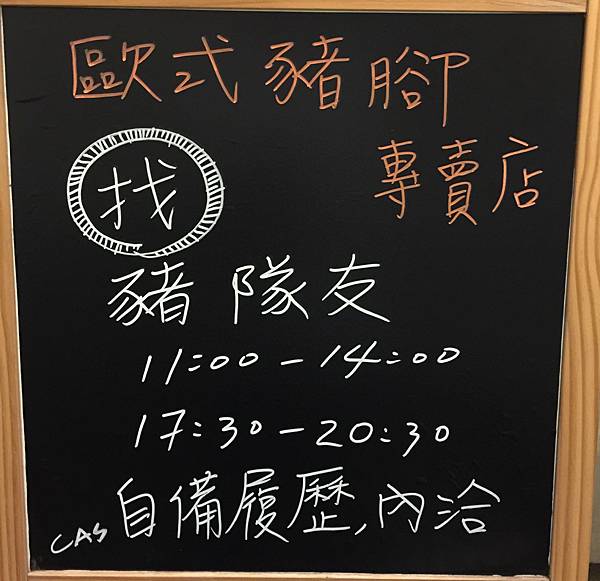 歐式豬腳
專賣店
找
豬隊友
11:00-14:00
17:30-20:30
CAS自備履歷,內洽